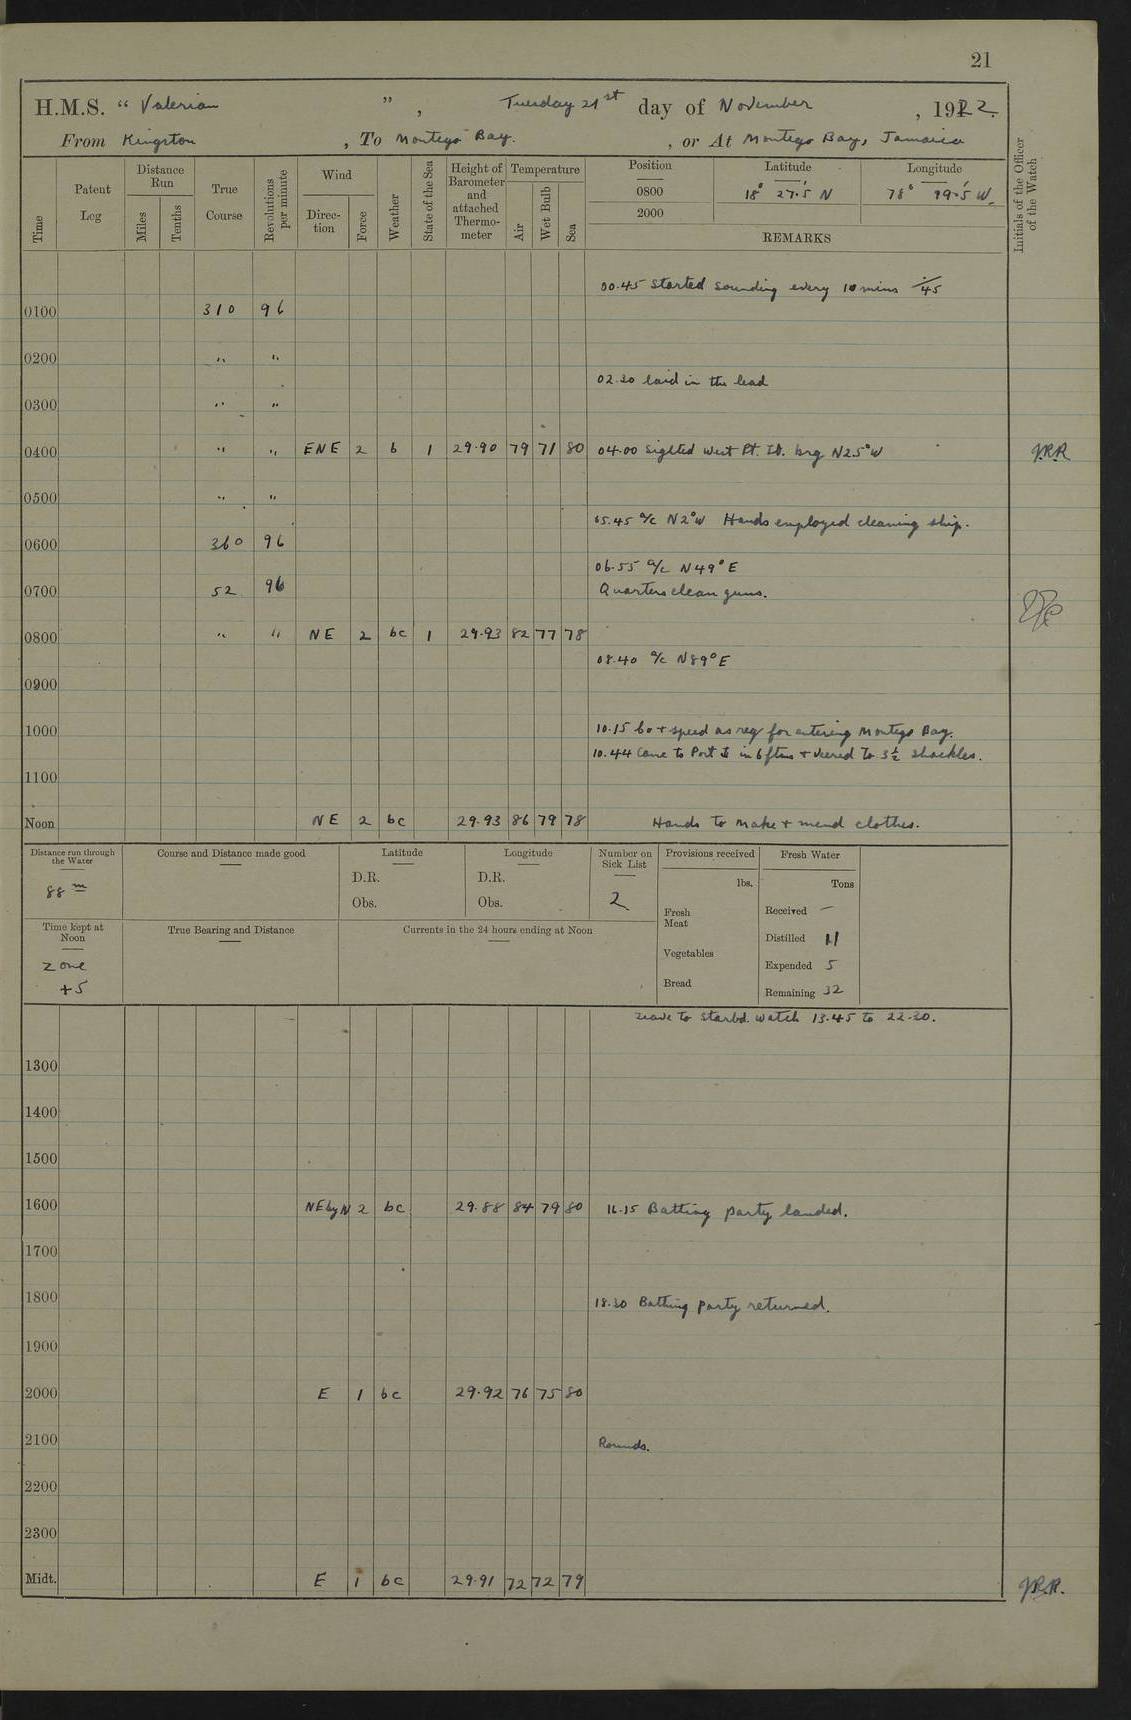 21
H.M.S. "Valerian", Tuesday 21st day of November, 1922.
From Kingston, To Montego Bay., or At Montego Bay, Jamaica
Time
Patent Log
Distance Run
Miles
Tenths
True Course
Revolutions per minute
Wind
Direction
Force
Weather
State of the Sea
Height of Barometer and attached Thermometer
Temperature
Air
Wet Bulb
Sea
Position
Latitude
Longitude
0800 18° 27·5 N 78° 19·5 W.
2000
REMARKS
Initials of the Officer of the Watch
00.45 Started sounding every 10 mins
0100 310 96
0200 " "
02.20 laid in the lead
0300 " "
0400 " " ENE 2 b 1 29·90 79 71 80 04.00 Sighted West Pt. Lt. brg N25°W
0500 " "
05.45 a/c N2°W Hands employed cleaning ship.
0600 360 96
06.55 a/c N49°E
0700 52 96 Quarters clean guns.
0800 " " NE 2 bc 1 29·93 82 77 78
08.40 a/c N89°E
0900
1000 10.15 Co + speed as req for entering Montego Bay.
10.44 Came to Port ⚓ in 6 ftms + veered to 3½ shackles.
1100
Noon NE 2 bc 29·93 86 79 78 Hands to make + mend clothes.
Distance run through the Water
88 m
Course and Distance made good
Latitude
D.R.
Obs.
Longitude
D.R.
Obs.
Number on Sick List
2
Provisions received
lbs.
Fresh Meat
Vegetables
Bread
Fresh Water
Tons
Received —
Distilled 11
Expended 5
Remaining 32
Time kept at Noon
Zone
+5
True Bearing and Distance
Currents in the 24 hours ending at Noon
Leave to Starbd. Watch 13.45 to 22.30.
1300
1400
1500
1600 NEbyN 2 bc 29·88 84 79 80 16.15 Bathing party landed.
1700
1800 18.30 Bathing party returned.
1900
2000 E 1 bc 29·92 76 75 80
2100 Rounds.
2200
2300
Midt. E 1 bc 29·91 72 72 79